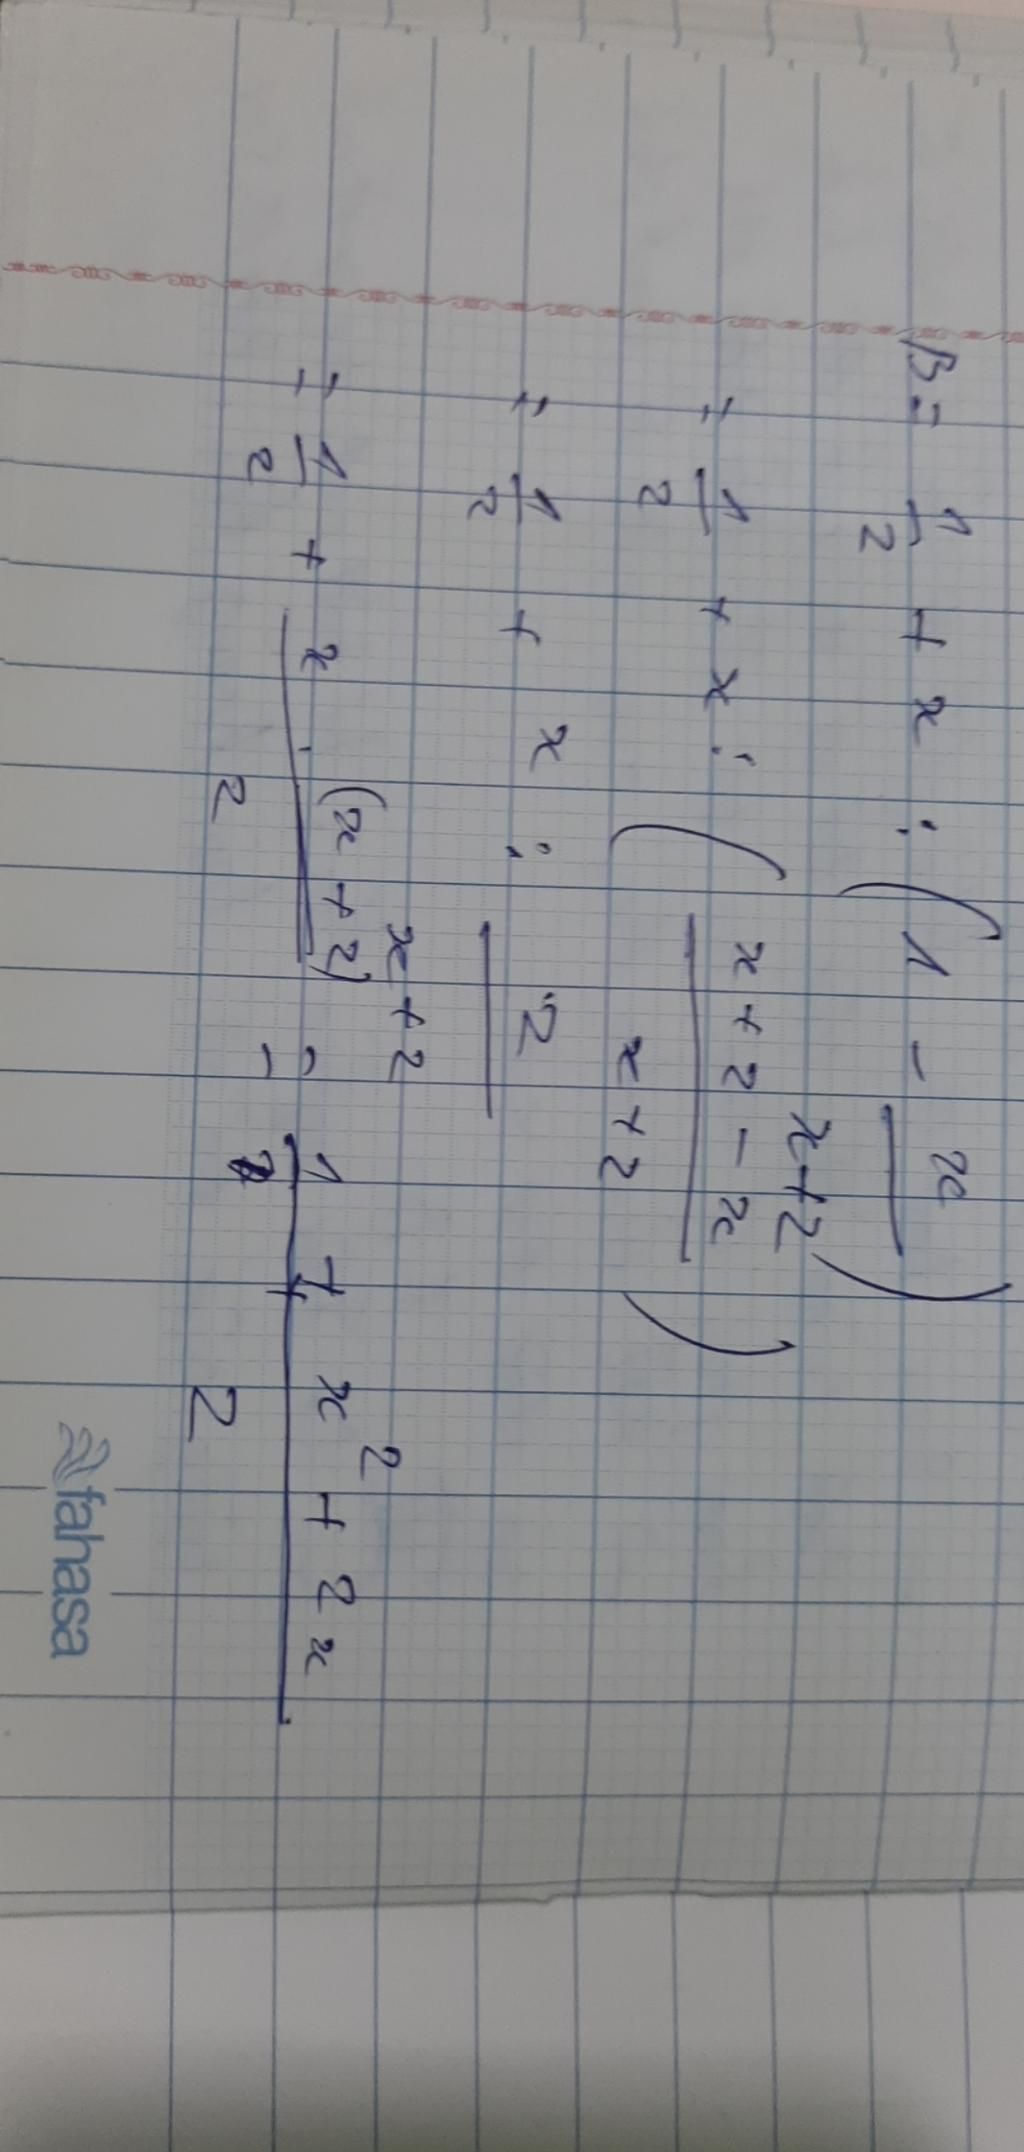 B = 1/2 + x : (1 - x/(x+2))
= 1/2 + x : ((x+2-x)/(x+2))
= 1/2 + x : 2/(x+2)
= 1/2 + x.(x+2)/2 = (1+x²+2x)/2
fahasa